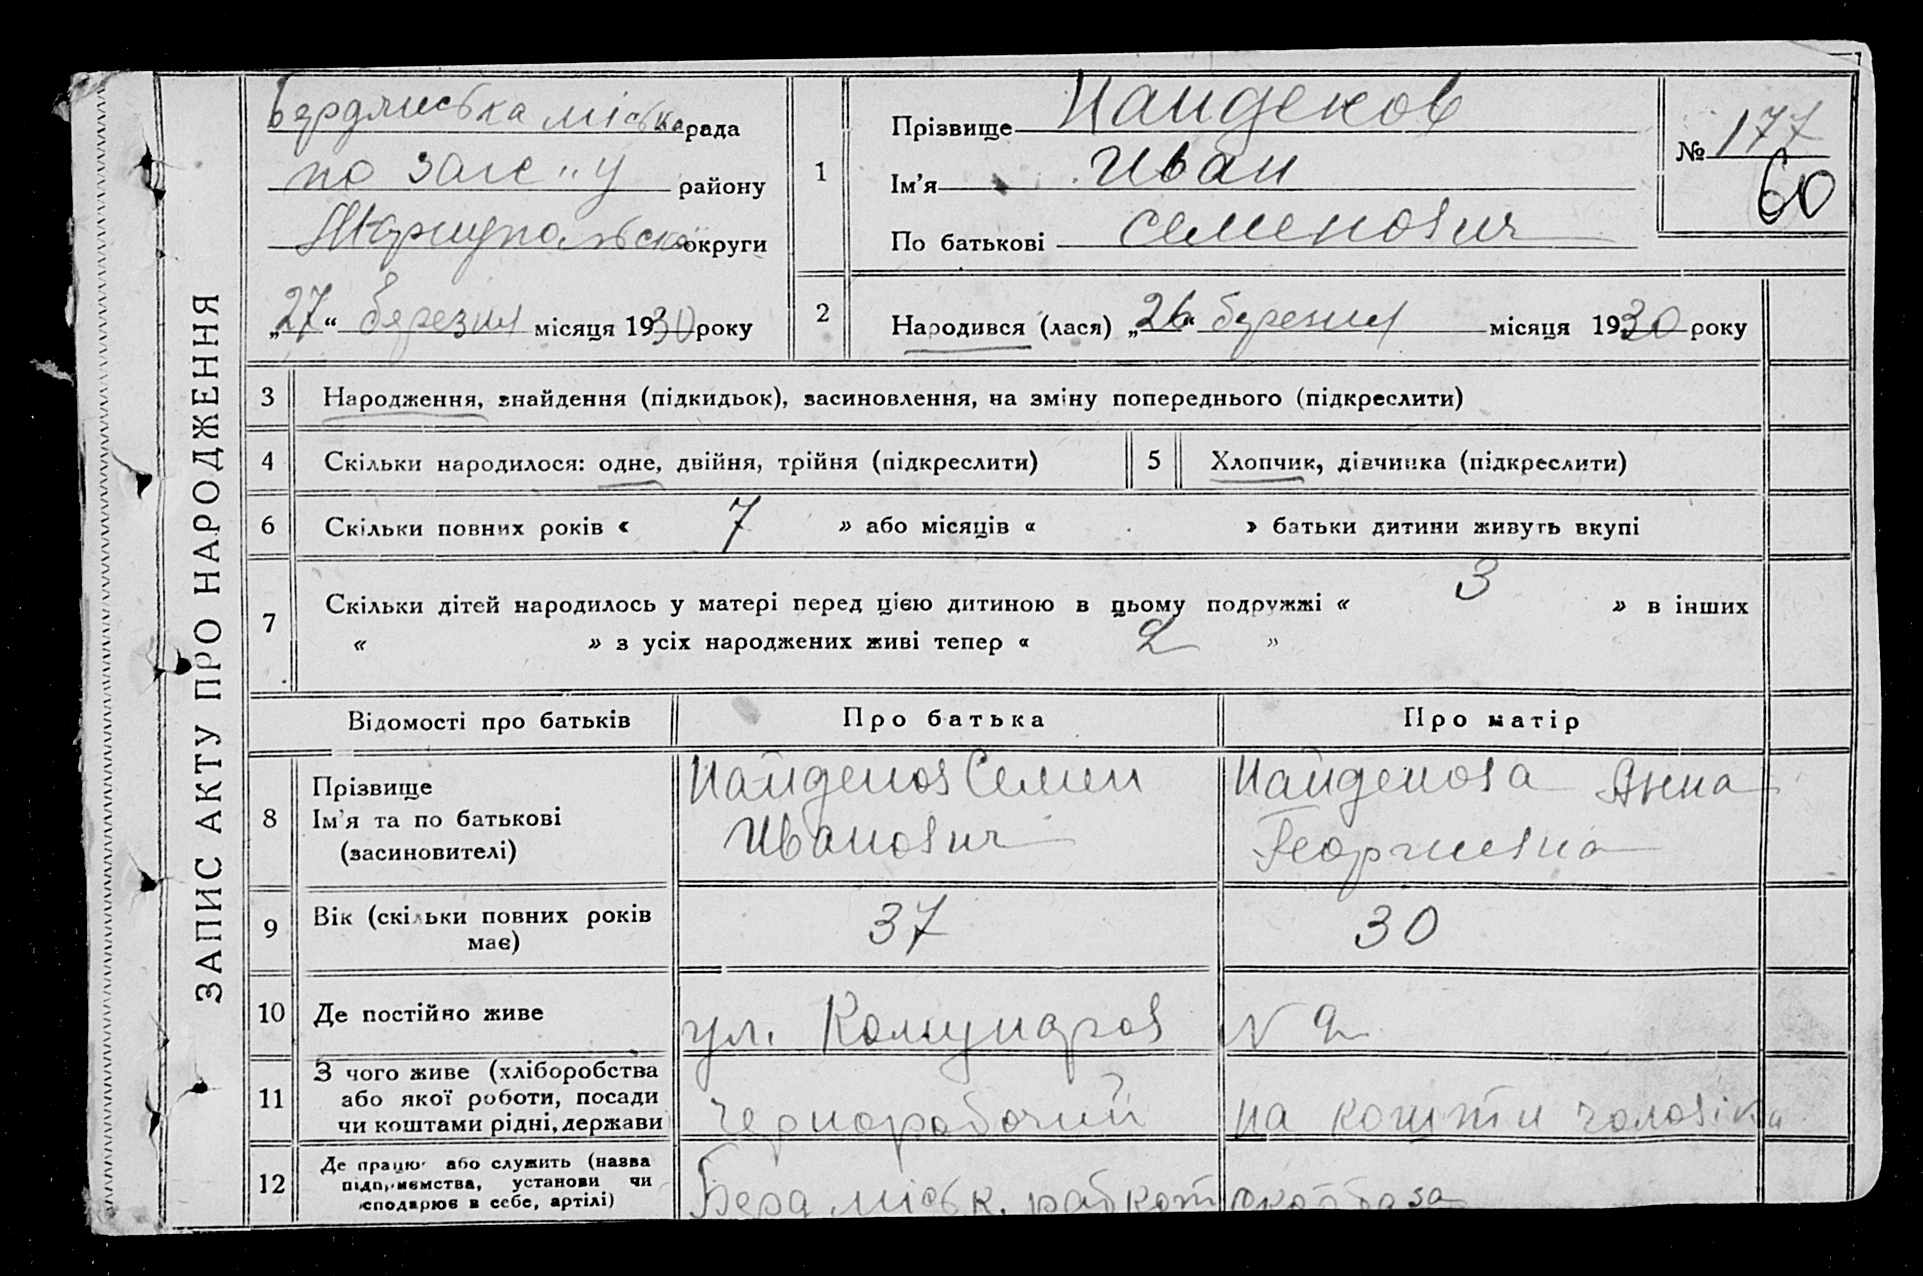 ЗАПИС АКТУ ПРО НАРОДЖЕННЯ
Бердянська міська рада
по загс"у району
Маріупольська округи
„27“ березня місяця 1930 року
1
Прізвище Найденов
Ім'я Иван
По батькові Семенович
№ 177
60
2
Народився (лася) „26“ березня місяця 1930 року
3 Народження, знайдення (підкидьок), засиновлення, на зміну попереднього (підкреслити)
4 Скільки народилося: одне, двійня, трійня (підкреслити) 5 Хлопчик, дівчинка (підкреслити)
6 Скільки повних років « 7 » або місяців « » батьки дитини живуть вкупі
7 Скільки дітей народилось у матері перед цією дитиною в цьому подружжі « 3 » в інших
« » з усіх народжених живі тепер « 2 »
Відомості про батьків Про батька Про матір
8 Прізвище
Ім'я та по батькові
(засиновителі)
Найденов Семен
Иванович
Найденова Анна
Георгиевна
9 Вік (скільки повних років
має)
37 30
10 Де постійно живе ул. Комунаров N 2
11 З чого живе (хліборобства
або якої роботи, посади
чи коштами рідні, держави
чернорабочий на кошти чоловіка
12 Де працює або служить (назва
підприємства, установи чи
господарює в себе, артілі)
Берд. міськ.